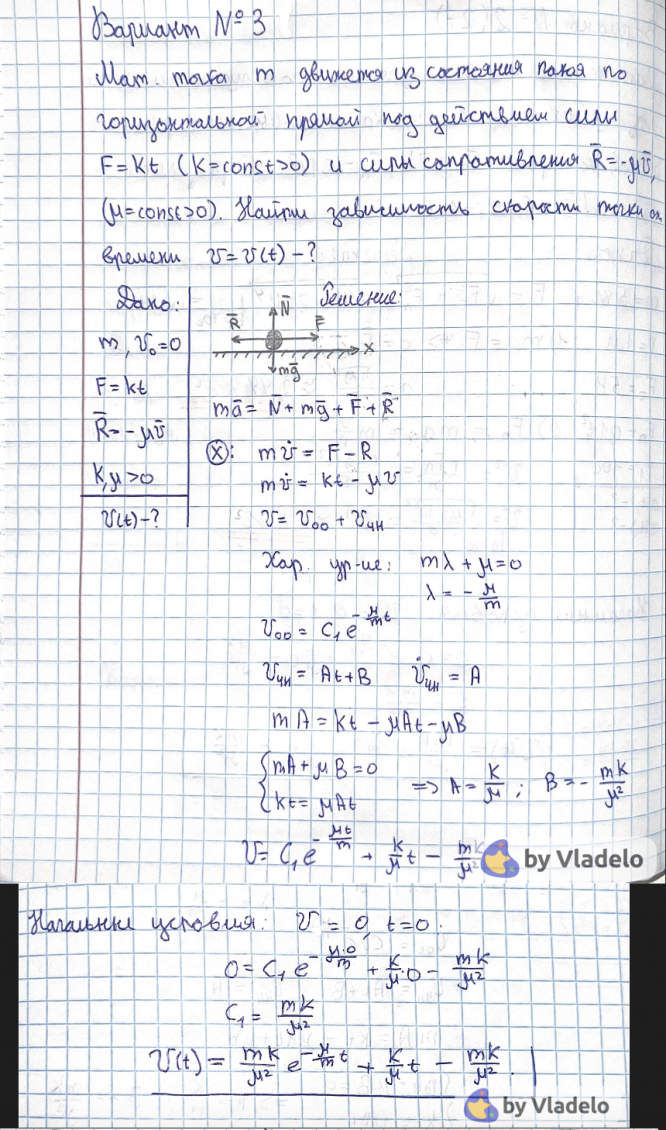 Вариант № 3
Мат. точка m движется из состояния покоя по
горизонтальной прямой под действием силы
F=Kt (K=const>0) и силы сопротивления R̅=-μv̅,
(μ=const>0). Найти зависимость скорости точки от
времени v=v(t)-?
Дано:
m, v₀=0
F=kt
R̅=-μv̅
K,μ>0
v(t)-?
Решение:
N̅
R̅ F̅
x
mg̅
ma̅ = N̅ + mg̅ + F̅ + R̅
(x): mv̇ = F-R
mv̇ = kt-μv
v = v₀₀ + vчн
Хар. ур-ие: mλ+μ=0
λ = -μ/m
v₀₀ = C₁e^(-μ/m t)
vчн = At+B v̇чн = A
mA = kt - μAt - μB
{mA+μB=0
{kt=μAt => A = K/μ ; B = -mK/μ²
v = C₁e^(-μt/m) + K/μ t - mK/μ²
by Vladelo
Начальные условия: v=0, t=0.
0 = C₁e^(-μ·0/m) + K/μ·0 - mK/μ²
C₁ = mK/μ²
v(t) = mK/μ² e^(-μ/m t) + K/μ t - mK/μ².
by Vladelo